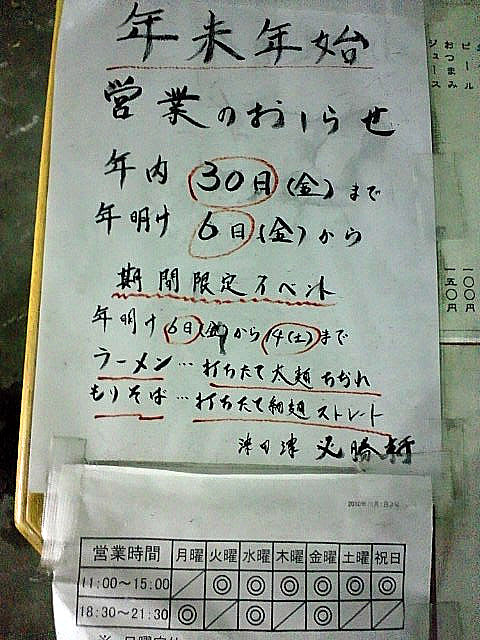 年末年始
営業のおしらせ
年内 30日(金)まで
年明け 6日(金)から
期間限定イベント
年明け6日(金)から14(土)まで
ラーメン…打ちたて太麺ちぢれ
もりそば…打ちたて細麺ストレート
津田沼 必勝軒
営業時間 月曜 火曜 水曜 木曜 金曜 土曜 祝日
11:00〜15:00 ／ ◎ ◎ ◎ ◎ ◎ ◎
18:30〜21:30 ◎ ／ ◎ ／ ◎ ／ ／
ビール
おつまみ
ジュース
一〇〇円
一五〇円